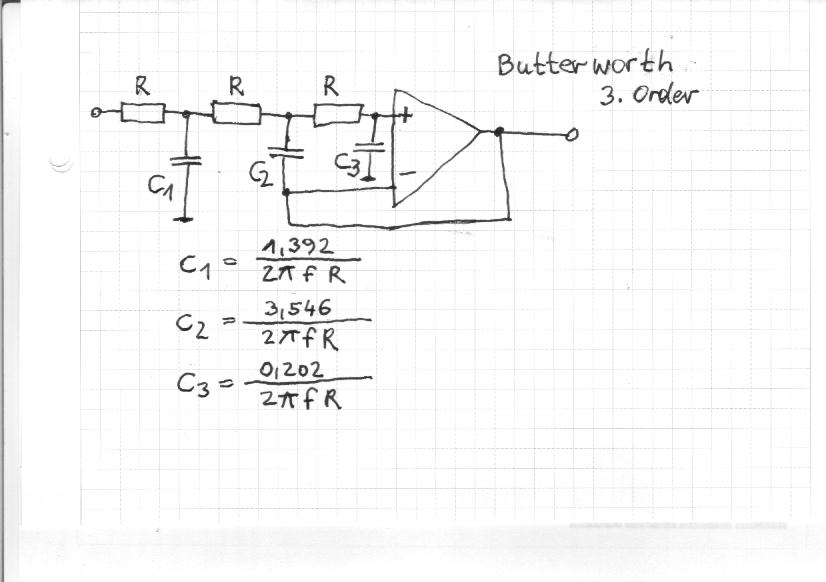 Butterworth
3. Order
R R R
+
C1 C2 C3 -
C1 = 1,392 / 2π f R
C2 = 3,546 / 2π f R
C3 = 0,202 / 2π f R